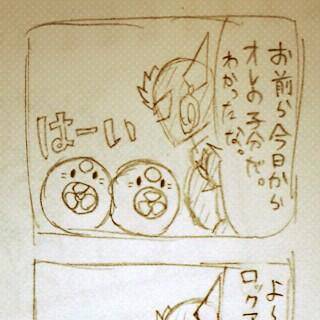 お前ら今日から
オレの子分だ。
わかったな。
はーい
よ〜
ロックマ